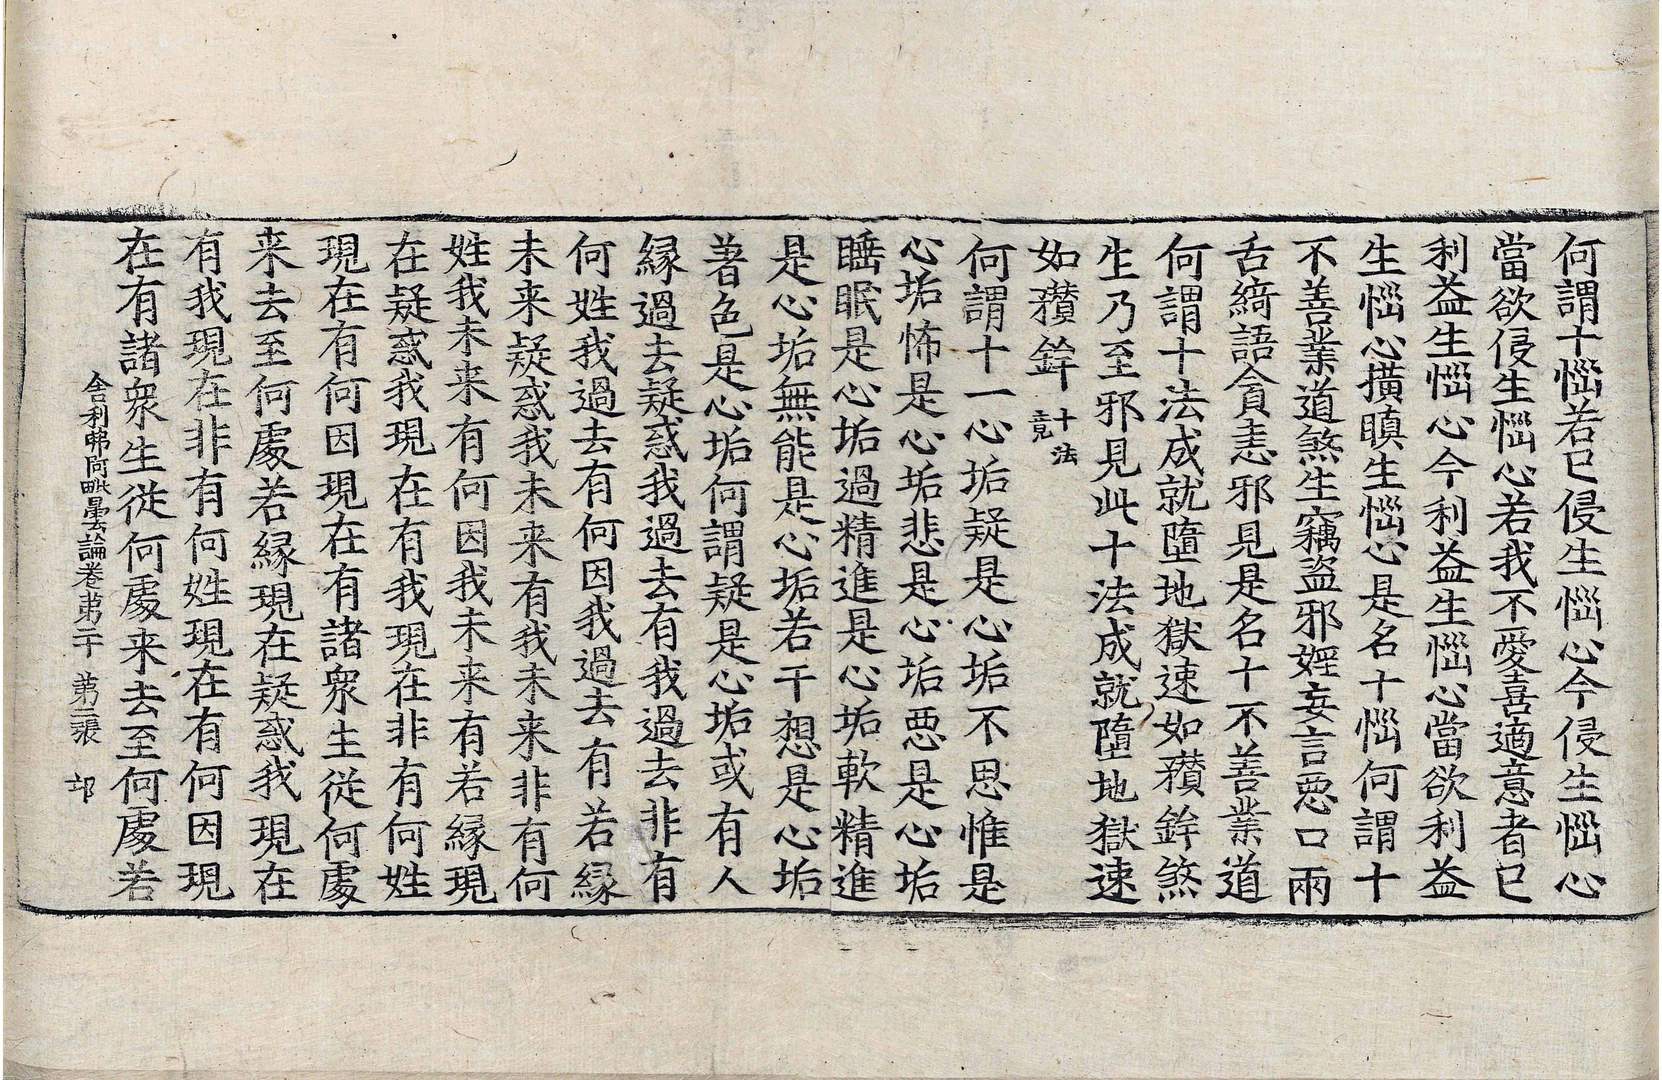 何謂十惱若已侵生惱心今侵生惱心
當欲侵生惱心若我不愛喜適意者已
利益生惱心今利益生惱心當欲利益
生惱心撗瞋生惱心是名十惱何謂十
不善業道煞生竊盗邪婬妄言惡口兩
舌綺語貪恚邪見是名十不善業道
何謂十法成就墮地獄速如穳鉾煞
生乃至邪見此十法成就墮地獄速
如穳鉾十法竟
何謂十一心垢疑是心垢不思惟是
心垢怖是心垢悲是心垢惡是心垢
睡眠是心垢過精進是心垢軟精進
是心垢無能是心垢若干想是心垢
著色是心垢何謂疑是心垢或有人
緣過去疑惑我過去有我過去非有
何姓我過去有何因我過去有若緣
未来疑惑我未来有我未来非有何
姓我未来有何因我未来有若緣現
在疑惑我現在有我現在非有何姓
現在有何因現在有諸衆生從何處
来去至何處若緣現在疑惑我現在
有我現在非有何姓現在有何因現
在有諸衆生從何處来去至何處若
舍利弗阿毗曇論卷苐二十 苐二張 邙